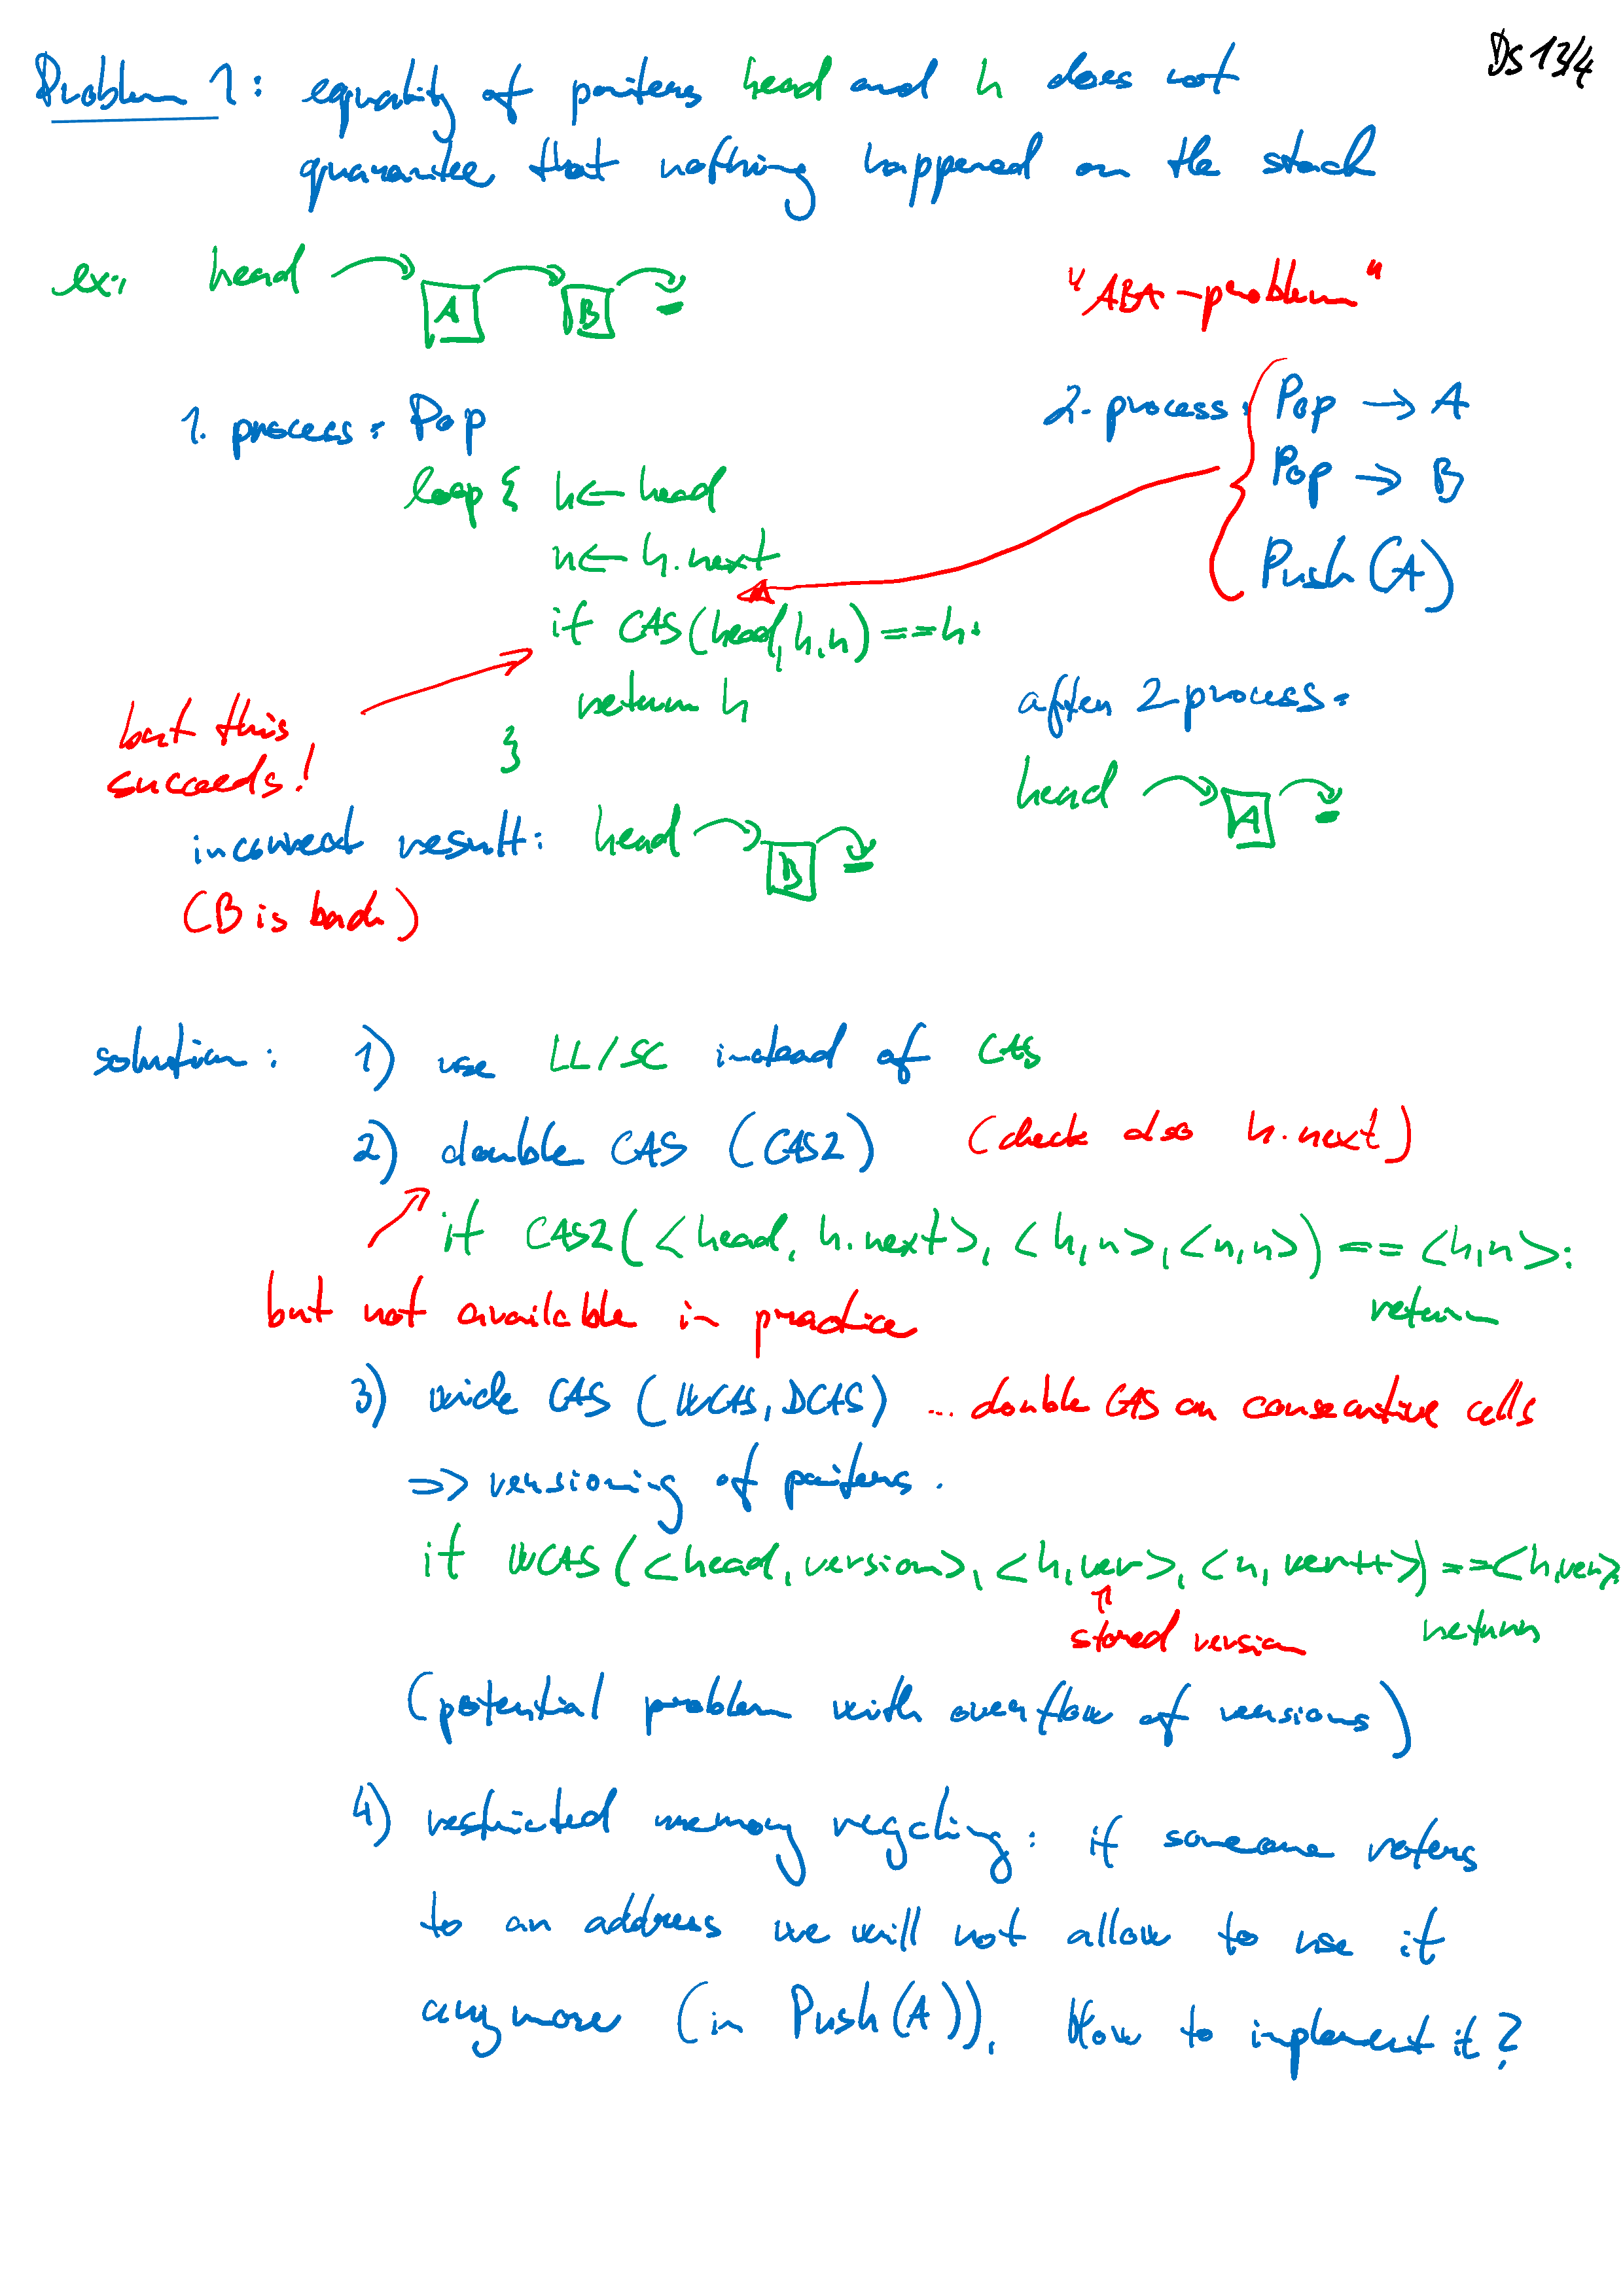 DS 13/4
Problem 1: equality of pointers head and h does not
guarantee that nothing happened on the stack
ex.: head A B
"ABA-problem"
1. process: Pop
loop { h ← head
n ← h.next
if CAS(head, h, n) == h:
return h
}
2. process: Pop → A
Pop → B
Push (A)
but this
succeeds!
after 2 process:
head A
incorrect result: head B
(B is back)
solution: 1) use LL/SC instead of CAS
2) double CAS (CAS2) (check also h.next)
if CAS2(<head, h.next>, <h,n>, <n,n>) == <h,n>:
return
but not available in practice
3) wide CAS (WCAS, DCAS) ... double CAS on consecutive cells
=> versioning of pointers.
if WCAS(<head, version>, <h, ver>, <n, ver++>) == <h, ver>:
↑
stored version
return
(potential problem with overflow of versions)
4) restricted memory recycling: if someone refers
to an address we will not allow to use it
anymore (in Push(A)). How to implement it?